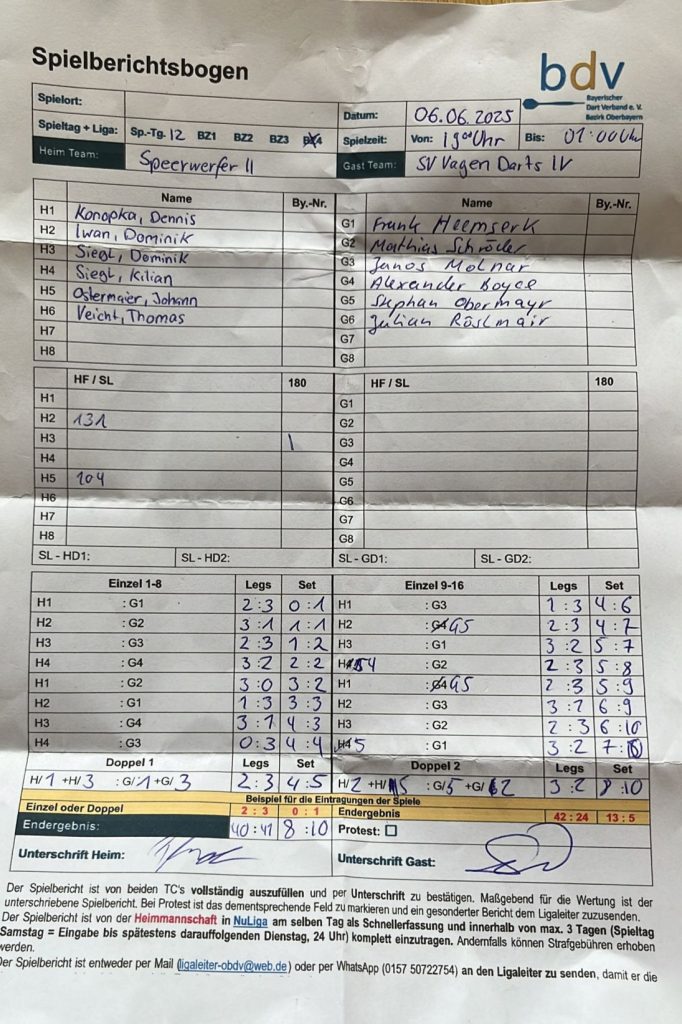 Spielberichtsbogen
bdv
Bayerischer
Dart Verband e. V.
Bezirk Oberbayern
Spielort:
Datum: 06.06.2025
Spieltag + Liga: Sp.-Tg. 12 BZ1 BZ2 BZ3 BZ4
Spielzeit: Von: 19°° Uhr Bis: 01:00 Uhr
Heim Team: Speerwerfer II
Gast Team: SV Vagen Darts IV
Name By.-Nr. Name By.-Nr.
H1 Konopka, Dennis G1 Frank Heemserk
H2 Iwan, Dominik G2 Matthias Schröder
H3 Siegl, Dominik G3 Janos Molnar
H4 Siegl, Kilian G4 Alexander Boyce
H5 Ostermaier, Johann G5 Stephan Obermayr
H6 Veicht, Thomas G6 Julian Röslmair
H7 G7
H8 G8
HF / SL 180 HF / SL 180
H1 G1
H2 131 G2
H3 | G3
H4 G4
H5 104 G5
H6 G6
H7 G7
H8 G8
SL - HD1: SL - HD2: SL - GD1: SL - GD2:
Einzel 1-8 Legs Set Einzel 9-16 Legs Set
H1 : G1 2 : 3 0 : 1 H1 : G3 1 : 3 4 : 6
H2 : G2 3 : 1 1 : 1 H2 : G5 2 : 3 4 : 7
H3 : G3 2 : 3 1 : 2 H3 : G1 3 : 2 5 : 7
H4 : G4 3 : 2 2 : 2 H4 : G2 2 : 3 5 : 8
H1 : G2 3 : 0 3 : 2 H1 : G5 2 : 3 5 : 9
H2 : G1 1 : 3 3 : 3 H2 : G3 3 : 2 6 : 9
H3 : G4 3 : 1 4 : 3 H3 : G2 2 : 3 6 : 10
H4 : G3 0 : 3 4 : 4 H5 : G1 3 : 2 7 : 10
Doppel 1 Legs Set Doppel 2 Legs Set
H/ 1 +H/ 3 : G/ 1 +G/ 3 2 : 3 4 : 5 H/ 2 +H/ 5 : G/ 5 +G/ 2 3 : 2 8 : 10
Beispiel für die Eintragungen der Spiele
Einzel oder Doppel 2 : 3 0 : 1 Endergebnis 42 : 24 13 : 5
Endergebnis: 40 : 41 8 : 10 Protest:
Unterschrift Heim: Unterschrift Gast:
Der Spielbericht ist von beiden TC's vollständig auszufüllen und per Unterschrift zu bestätigen. Maßgebend für die Wertung ist der
unterschriebene Spielbericht. Bei Protest ist das dementsprechende Feld zu markieren und ein gesonderter Bericht dem Ligaleiter zuzusenden.
Der Spielbericht ist von der Heimmannschaft in NuLiga am selben Tag als Schnellerfassung und innerhalb von max. 3 Tagen (Spieltag
Samstag = Eingabe bis spätestens darauffolgenden Dienstag, 24 Uhr) komplett einzutragen. Andernfalls können Strafgebühren erhoben
werden.
Der Spielbericht ist entweder per Mail (ligaleiter-obdv@web.de) oder per WhatsApp (0157 50722754) an den Ligaleiter zu senden, damit er die